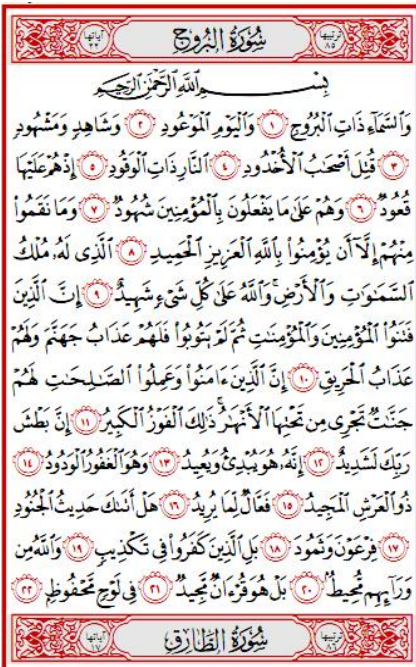 ترتيبها ٨٥ سُورَةُ البُرُوجِ آياتها ٢٢
بِسْمِ اللَّهِ الرَّحْمَٰنِ الرَّحِيمِ
وَالسَّمَاءِ ذَاتِ الْبُرُوجِ ١ وَالْيَوْمِ الْمَوْعُودِ ٢ وَشَاهِدٍ وَمَشْهُودٍ
٣ قُتِلَ أَصْحَٰبُ الْأُخْدُودِ ٤ النَّارِ ذَاتِ الْوَقُودِ ٥ إِذْ هُمْ عَلَيْهَا
قُعُودٌ ٦ وَهُمْ عَلَىٰ مَا يَفْعَلُونَ بِالْمُؤْمِنِينَ شُهُودٌ ٧ وَمَا نَقَمُوا
مِنْهُمْ إِلَّا أَن يُؤْمِنُوا بِاللَّهِ الْعَزِيزِ الْحَمِيدِ ٨ الَّذِى لَهُۥ مُلْكُ
السَّمَٰوَٰتِ وَالْأَرْضِ ۚ وَاللَّهُ عَلَىٰ كُلِّ شَىْءٍ شَهِيدٌ ٩ إِنَّ الَّذِينَ
فَتَنُوا الْمُؤْمِنِينَ وَالْمُؤْمِنَٰتِ ثُمَّ لَمْ يَتُوبُوا فَلَهُمْ عَذَابُ جَهَنَّمَ وَلَهُمْ
عَذَابُ الْحَرِيقِ ١٠ إِنَّ الَّذِينَ ءَامَنُوا وَعَمِلُوا الصَّٰلِحَٰتِ لَهُمْ
جَنَّٰتٌ تَجْرِى مِن تَحْتِهَا الْأَنْهَٰرُ ۚ ذَٰلِكَ الْفَوْزُ الْكَبِيرُ ١١ إِنَّ بَطْشَ
رَبِّكَ لَشَدِيدٌ ١٢ إِنَّهُۥ هُوَ يُبْدِئُ وَيُعِيدُ ١٣ وَهُوَ الْغَفُورُ الْوَدُودُ ١٤
ذُو الْعَرْشِ الْمَجِيدُ ١٥ فَعَّالٌ لِّمَا يُرِيدُ ١٦ هَلْ أَتَىٰكَ حَدِيثُ الْجُنُودِ
١٧ فِرْعَوْنَ وَثَمُودَ ١٨ بَلِ الَّذِينَ كَفَرُوا فِى تَكْذِيبٍ ١٩ وَاللَّهُ مِن
وَرَآئِهِم مُّحِيطٌ ٢٠ بَلْ هُوَ قُرْءَانٌ مَّجِيدٌ ٢١ فِى لَوْحٍ مَّحْفُوظٍۭ ٢٢
ترتيبها ٨٦ سُورَةُ الطَّارِقِ آياتها ١٧